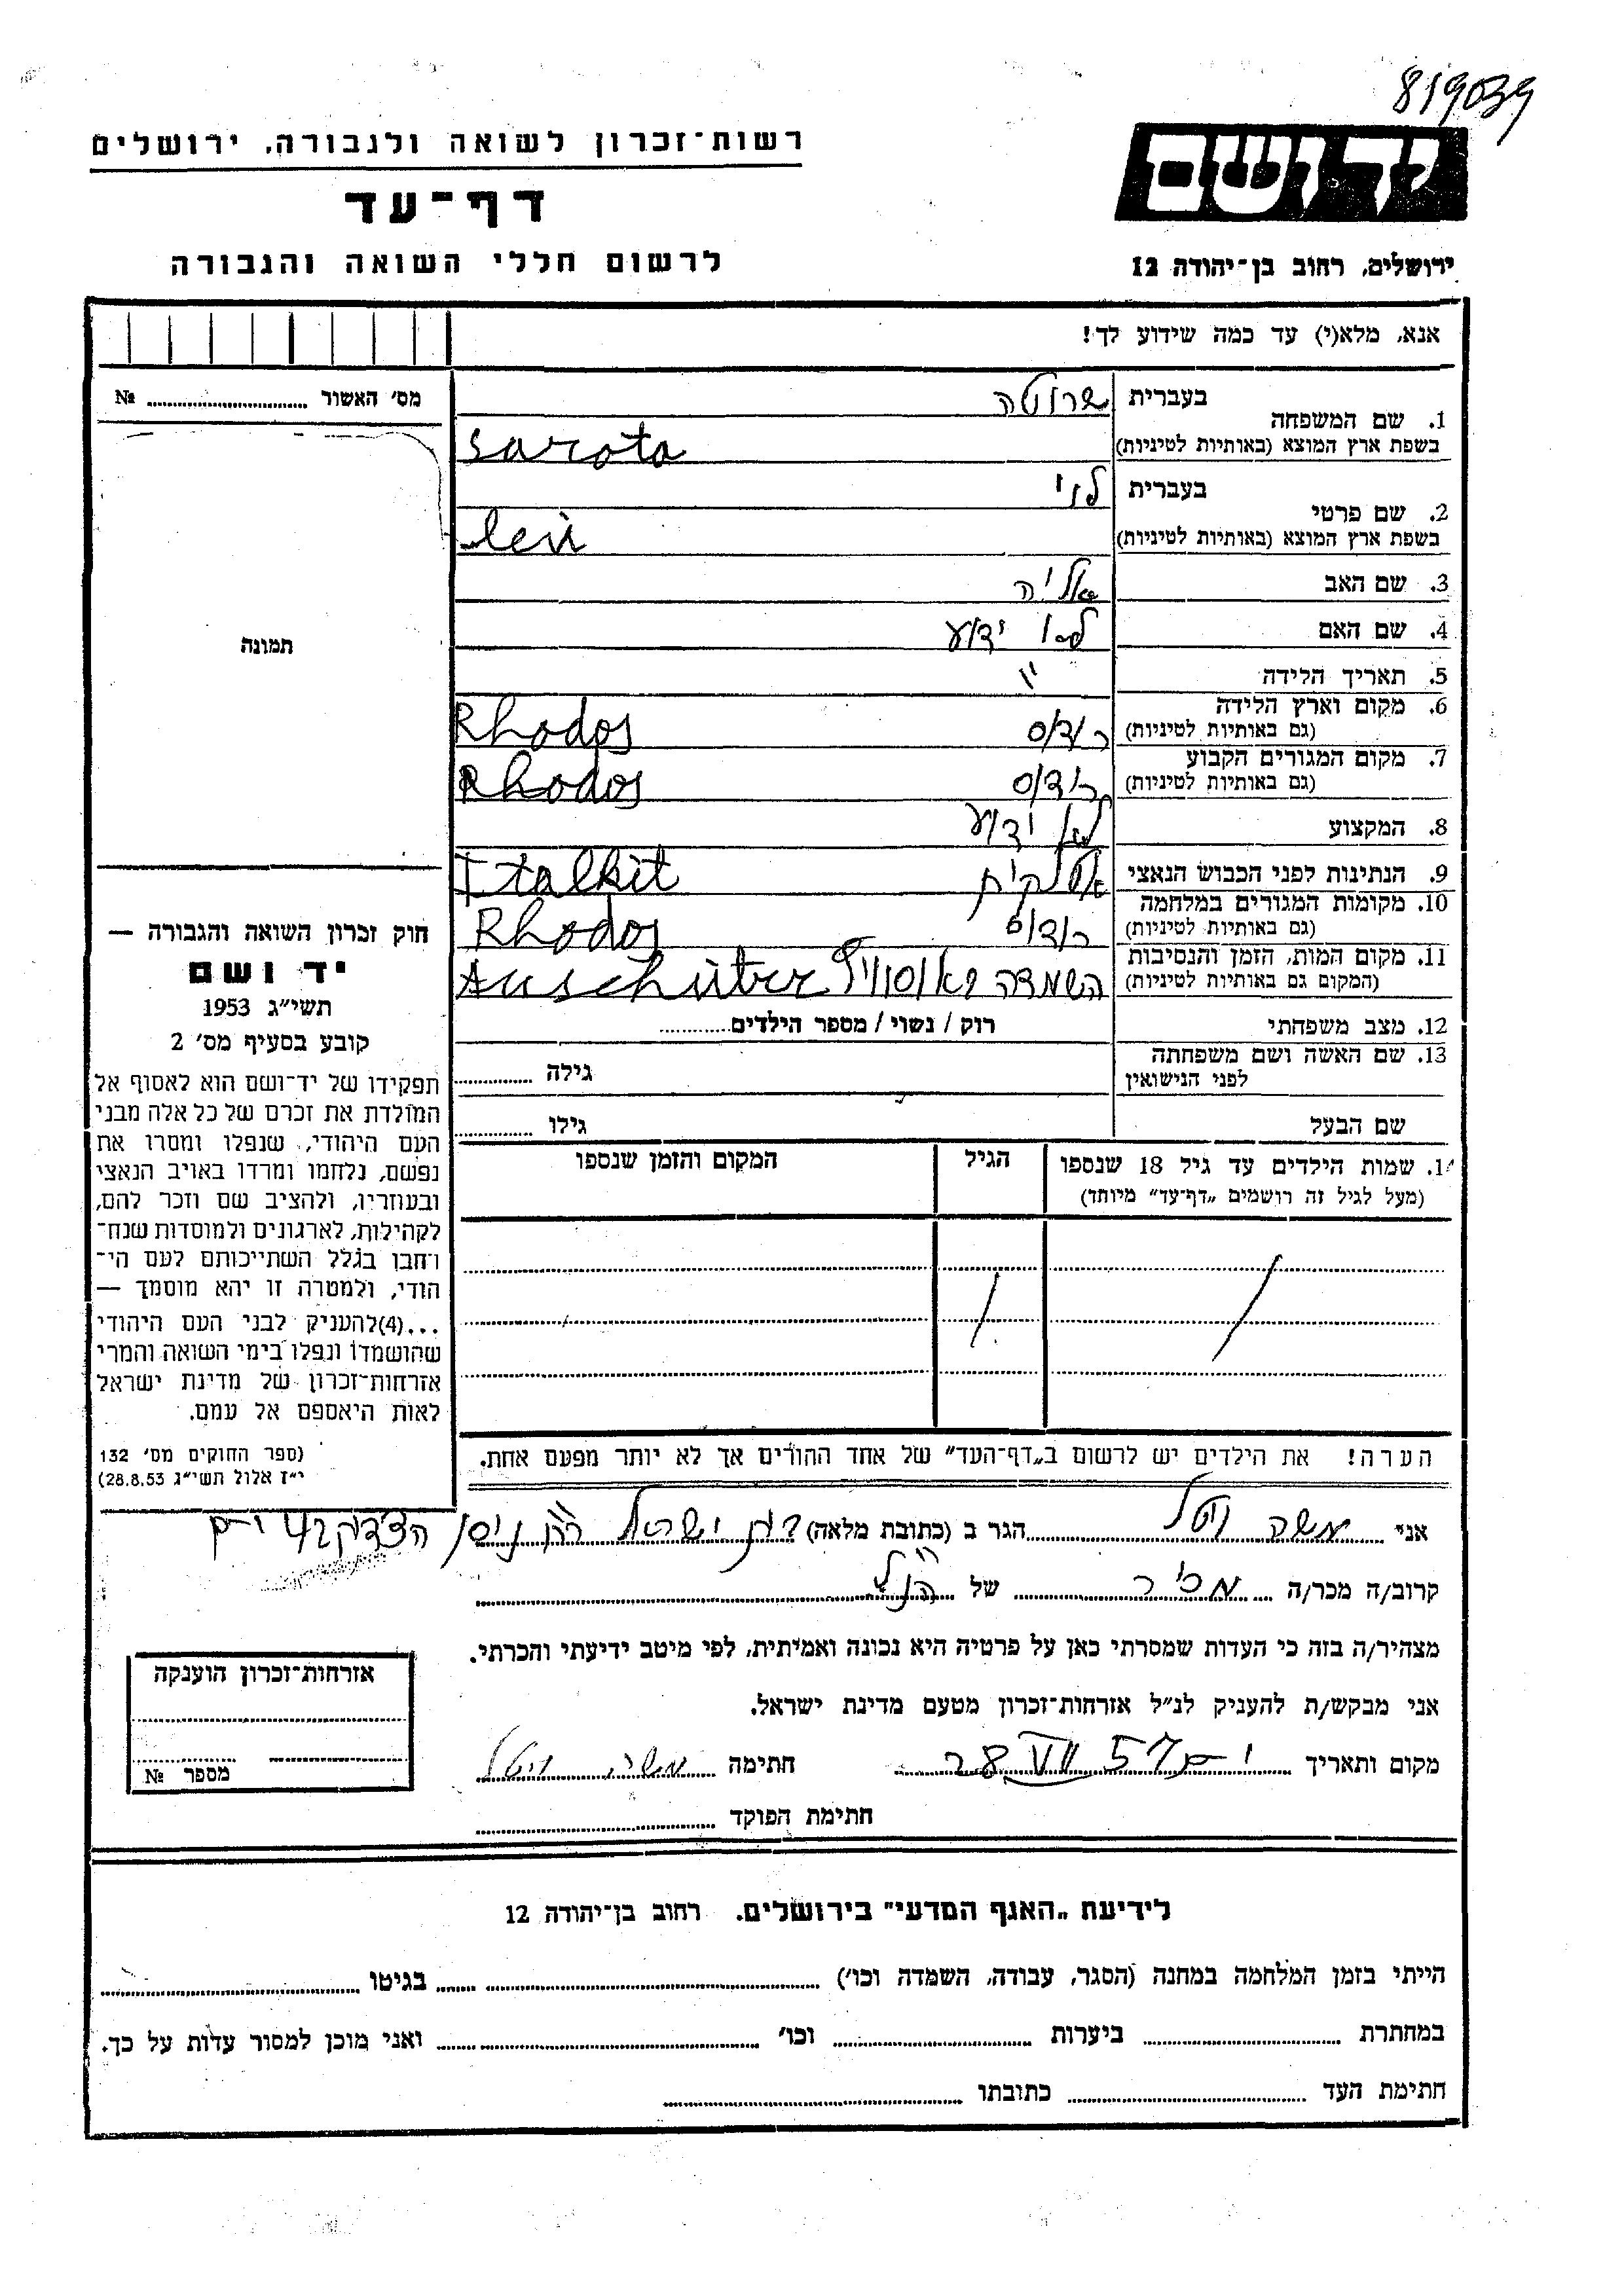 819039
רשות־זכרון לשואה ולגבורה, ירושלים
יד ושם
דף־עד
לרשום חללי השואה והגבורה
ירושלים, רחוב בן־יהודה 12
אנא, מלא(י) עד כמה שידוע לך!
מס' האשור № 
1. שם המשפחה
בעברית שרוטה
בשפת ארץ המוצא (באותיות לטיניות) Sarota
2. שם פרטי
בעברית לוי
בשפת ארץ המוצא (באותיות לטיניות) Levi
3. שם האב אליה
4. שם האם לא ידוע
5. תאריך הלידה "
6. מקום וארץ הלידה
(גם באותיות לטיניות) רודוס Rhodos
7. מקום המגורים הקבוע
(גם באותיות לטיניות) רודוס Rhodos
8. המקצוע לא ידוע
9. הנתינות לפני הכבוש הנאצי איטלקית Italkit
10. מקומות המגורים במלחמה
(גם באותיות לטיניות) רודוס Rhodos
11. מקום המות, הזמן והנסיבות
(המקום גם באותיות לטיניות) השמדה Auschwitz
12. מצב משפחתי רוק / נשוי / מספר הילדים
13. שם האשה ושם משפחתה
לפני הנישואין גילה
שם הבעל גילו
14. שמות הילדים עד גיל 18 שנספו הגיל המקום והזמן שנספו
(מעל לגיל זה רושמים „דף־עד" מיוחד)
הערה! את הילדים יש לרשום ב„דף־העד" של אחד ההורים אך לא יותר מפעם אחת.
תמונה
חוק זכרון השואה והגבורה —
יד ושם
תשי"ג 1953
קובע בסעיף מס' 2
תפקידו של יד־ושם הוא לאסוף אל
המולדת את זכרם של כל אלה מבני
העם היהודי, שנפלו ומסרו את
נפשם, נלחמו ומרדו באויב הנאצי
ובעוזריו, ולהציב שם וזכר להם,
לקהילות, לארגונים ולמוסדות שנח־
רחבו בגלל השתייכותם לעם הי־
הודי, ולמטרה זו יהא מוסמך —
...(4)להעניק לבני העם היהודי
שהושמדו ונפלו בימי השואה והמרי
אזרחות־זכרון של מדינת ישראל
לאות היאספם אל עמם.
(ספר החוקים מס' 132
י"ז אלול תשי"ג 28.8.53)
אני משה ויטל הגר ב (כתובת מלאה)
קרוב/ה מכר/ה מכיר של הנ"ל
מצהיר/ה בזה כי העדות שמסרתי כאן על פרטיה היא נכונה ואמיתית, לפי מיטב ידיעתי והכרתי.
אני מבקש/ת להעניק לנ"ל אזרחות־זכרון מטעם מדינת ישראל.
מקום ותאריך 28 VII 57 חתימה משה ויטל
חתימת הפוקד
אזרחות־זכרון הוענקה
מספר №
לידיעת „האגף המדעי" בירושלים. רחוב בן־יהודה 12
הייתי בזמן המלחמה במחנה (הסגר, עבודה, השמדה וכו') בגיטו
במחתרת ביערות וכו' ואני מוכן למסור עדות על כך.
חתימת העד כתובתו